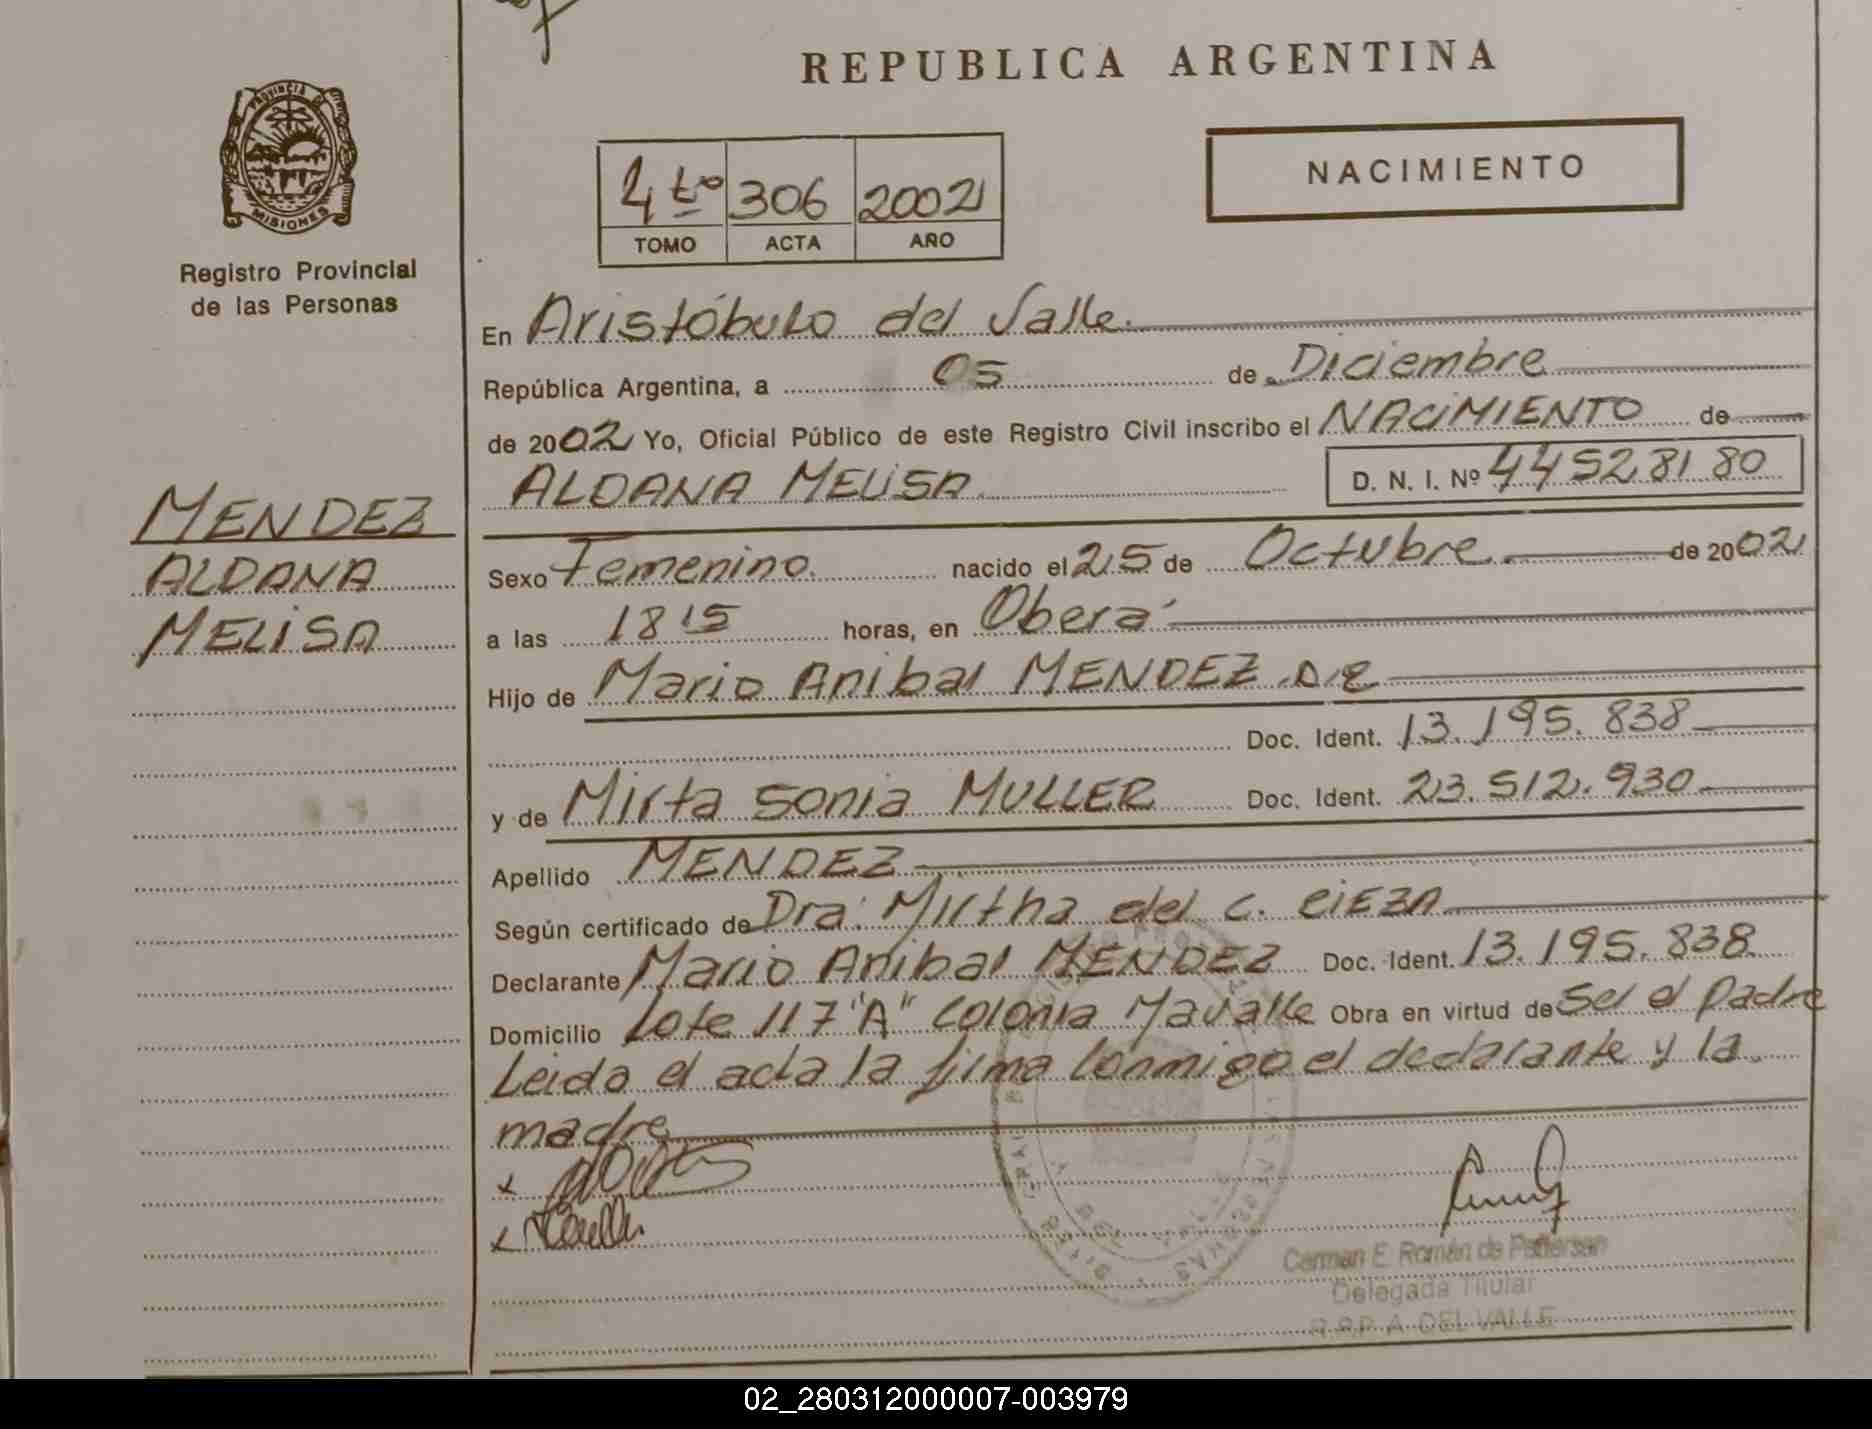 REPUBLICA ARGENTINA
PROVINCIA DE
MISIONES
Registro Provincial
de las Personas
NACIMIENTO
4to 306 2002
TOMO ACTA AÑO
En Aristóbulo del Valle.
República Argentina, a 05 de Diciembre
de 2002 Yo, Oficial Público de este Registro Civil inscribo el NACIMIENTO de
ALDANA MELISA D. N. I. Nº 44528180
MENDEZ
ALDANA
MELISA
Sexo Femenino. nacido el 25 de Octubre. de 2002
a las 18 15 horas, en Oberá
Hijo de Mario Anibal MENDEZ
Doc. Ident. 13.195.838
y de Mirta Sonia MULLER Doc. Ident. 23.512.930
Apellido MENDEZ
Según certificado de Dra. Mirtha del C. CIEZA
Declarante Mario Anibal MENDEZ Doc. Ident. 13.195.838.
Domicilio Lote 117 "A" Colonia Mavalle Obra en virtud de ser el padre
Leida el acta la firma conmigo el declarante y la
madre
Carmen E. Román de
Delegada Titular
R.P.P. A. DEL VALLE
02_280312000007-003979